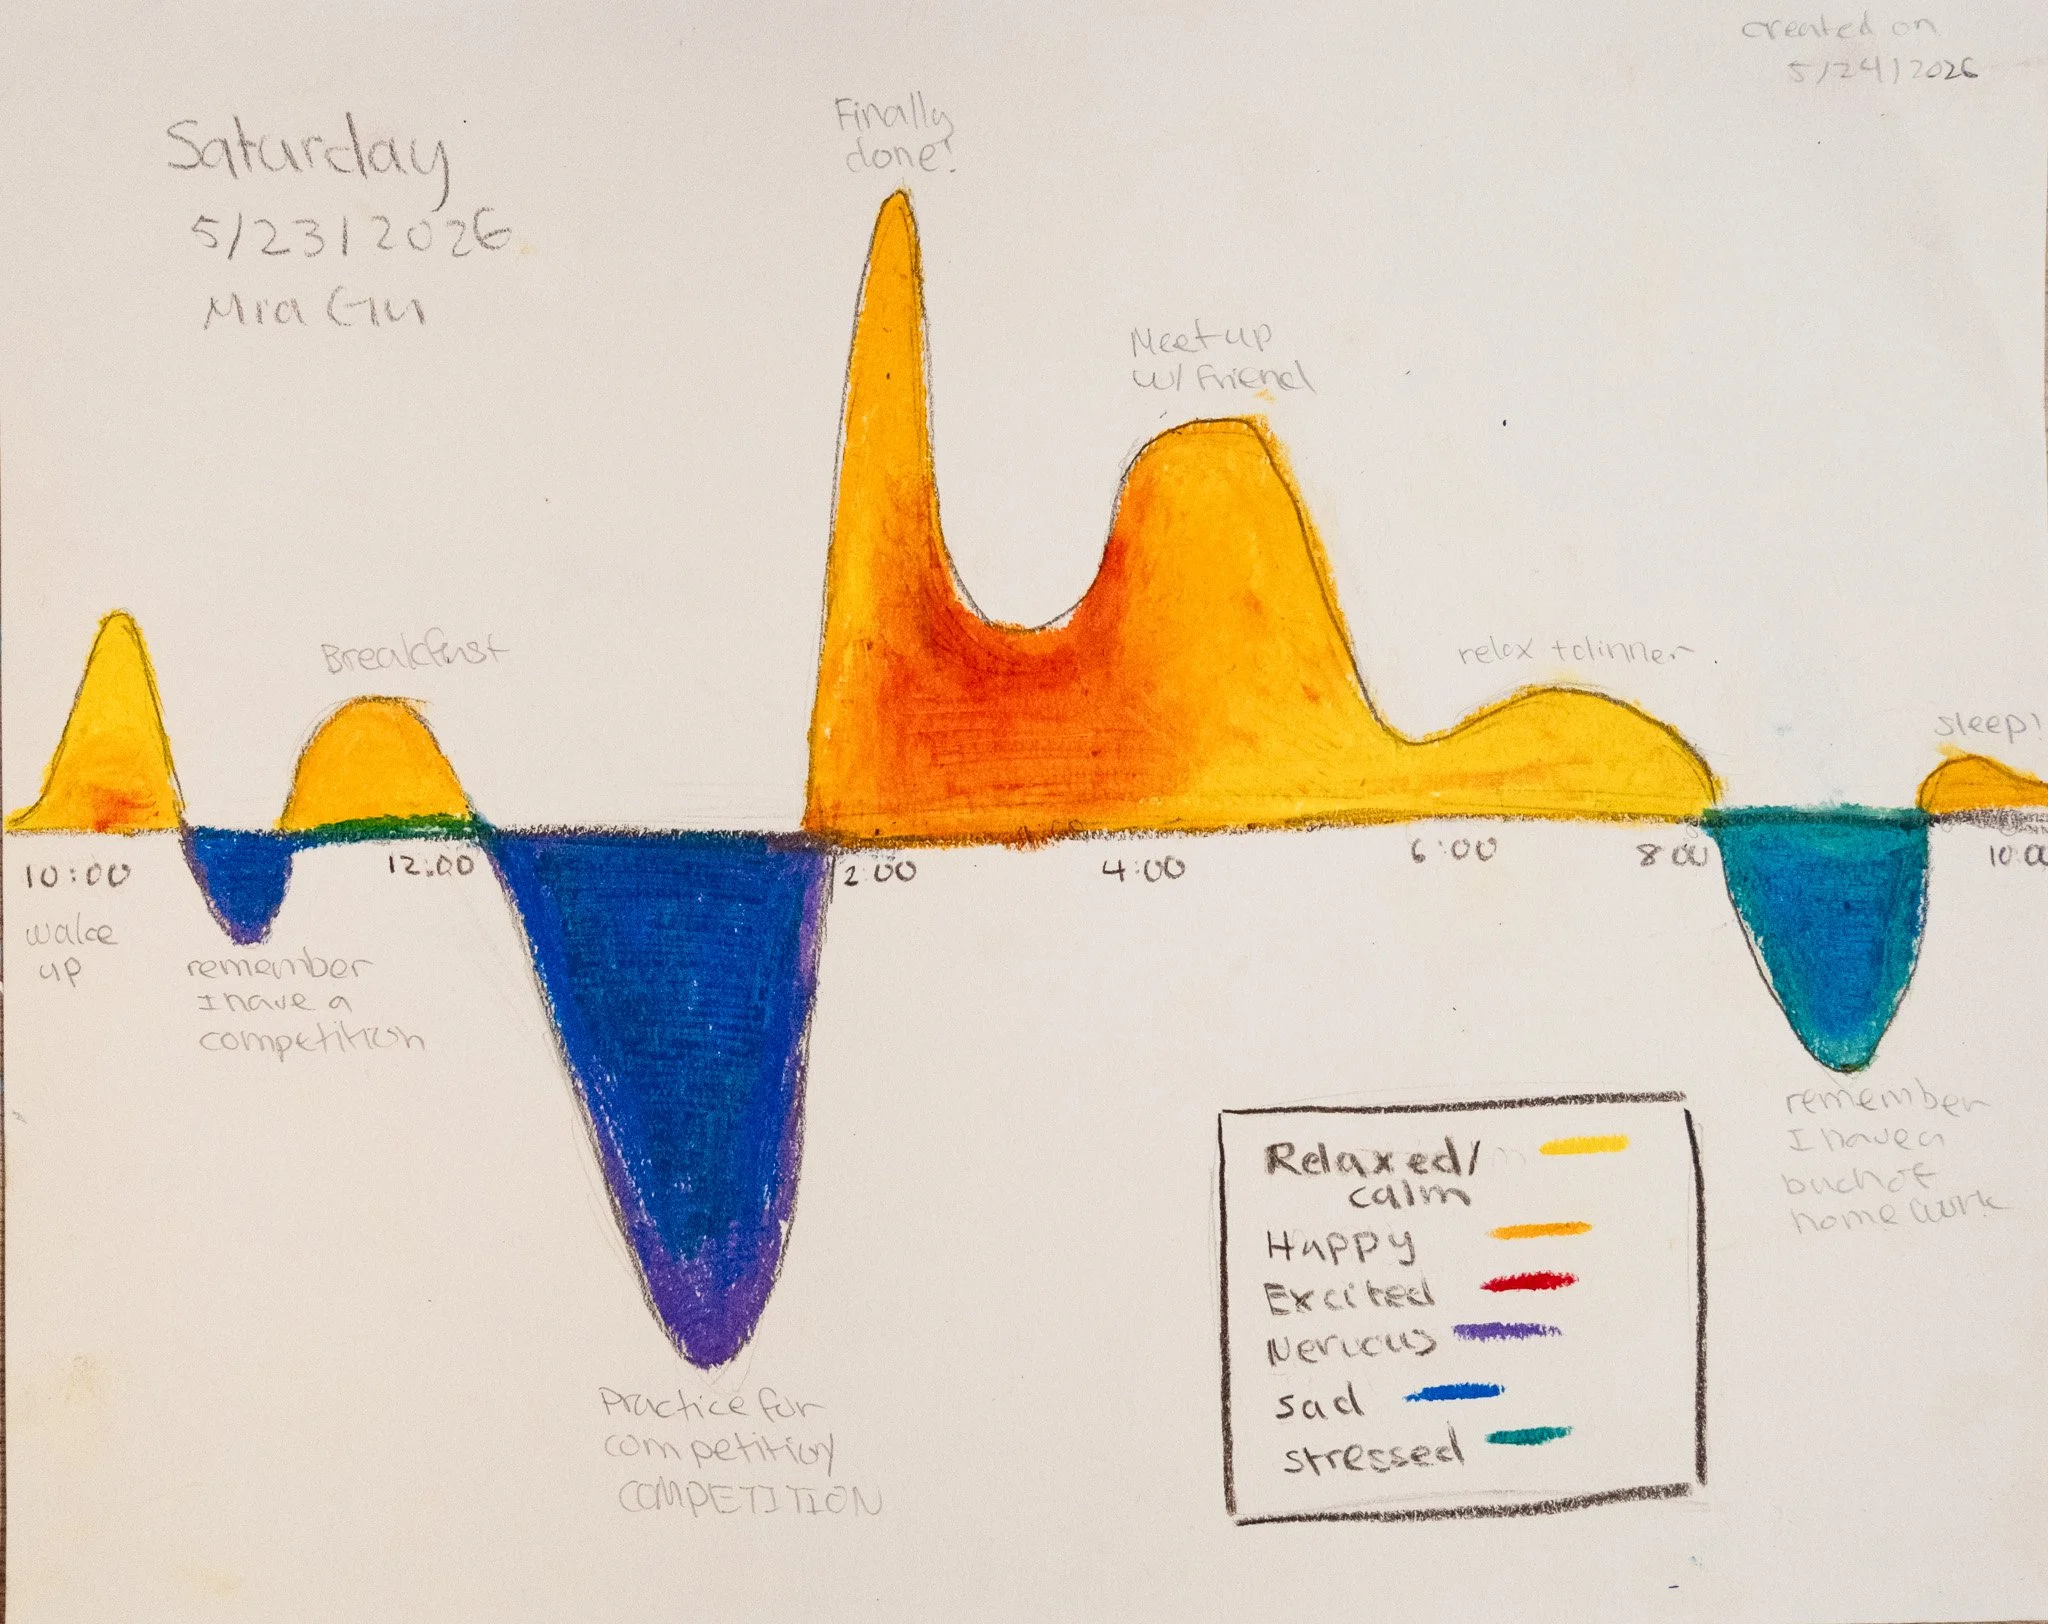 created on
5/24/2026
Saturday
5/23/2026
Mia Gu
Finally
done!
Meet up
w/ Friend
Breakfast
relax + dinner
sleep!
10:00
12:00
2:00
4:00
6:00
8:00
10:00
wake
up
remember
I have a
competition
Practice for
competition/
COMPETITION
remember
I have a
buch of
homework
Relaxed/
calm
Happy
Excited
Nervous
sad
stressed